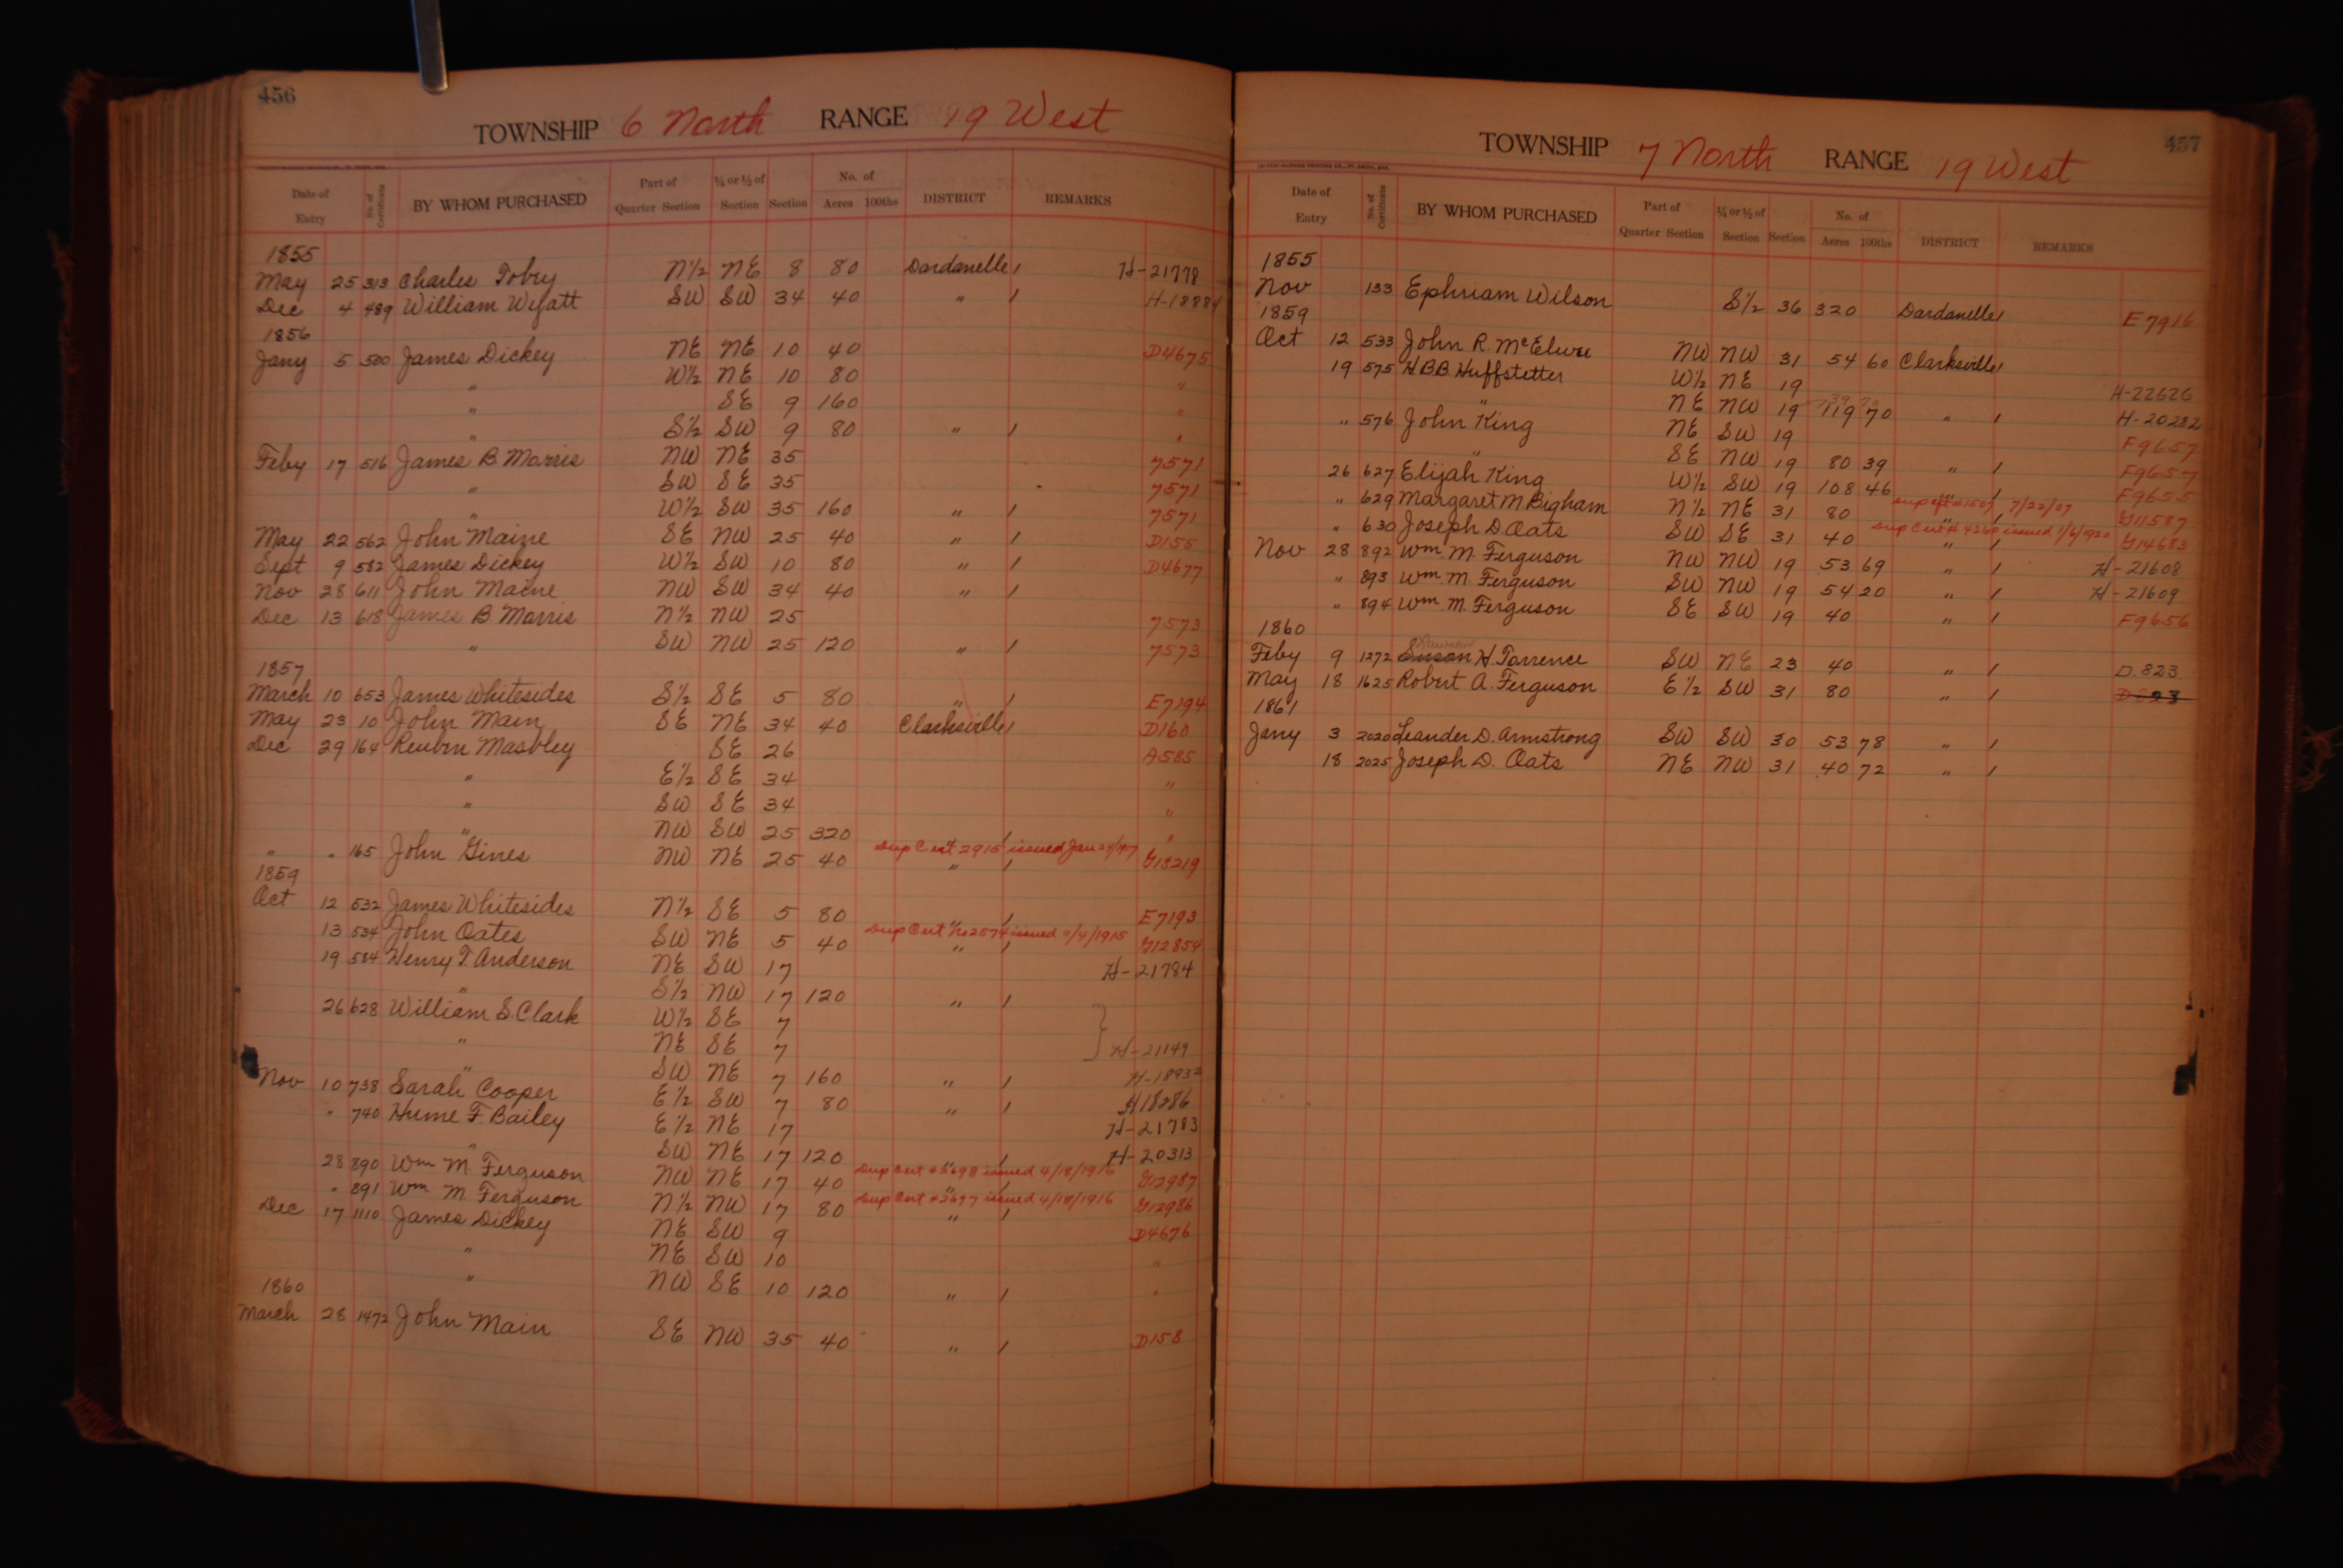 456
TOWNSHIP 6 North RANGE 19 West
Date of Entry No. of Certificate BY WHOM PURCHASED Part of Quarter Section ¼ or ½ of Section Section No. of Acres 100ths DISTRICT REMARKS
1855
May 25 313 Charles Tobey N½ NE 8 80 Dardanelle / H-21778
Dec 4 489 William Wyatt SW SW 34 40 " / H-18884
1856
Jany 5 500 James Dickey NE NE 10 40 D4675
" W½ NE 10 80 "
" SE 9 160 "
" S½ SW 9 80 " / "
Feby 17 516 James B Morris NW NE 35 7571
" SW SE 35 7571
" W½ SW 35 160 " / 7571
May 22 562 John Maine SE NW 25 40 " / D155
Sept 9 582 James Dickey W½ SW 10 80 " / D4677
Nov 28 611 John Maine NW SW 34 40 " /
Dec 13 618 James B Morris N½ NW 25 7573
" SW NW 25 120 " / 7573
1857
March 10 653 James Whitesides S½ SE 5 80 " / E7194
May 23 10 John Main SE NE 34 40 Clarksville / D160
Dec 29 164 Reuben Masbley SE 26 A585
" E½ SE 34 "
" SW SE 34 "
" NW SW 25 320 " / "
" " 165 John Gines NW NE 25 40 Dup Cert 2915 issued Jan " / G13219
1859
Oct 12 532 James Whitesides N½ SE 5 80 " / E7193
13 534 John Oates SW NE 5 40 Dup Cert No 2574 issued /4/1915 " / G12854
19 584 Henry T. Anderson NE SW 17 H-21784
" S½ NW 17 120 " /
26 628 William S. Clark W½ SE 7
" NE SE 7 H-21149
" SW NE 7 160 " / H-18932
Nov 10 738 Sarah Cooper E½ SW 7 80 " / H18286
" 740 Hume F. Bailey E½ NE 17 H-21783
" SW NE 17 120 " / H-20313
28 890 Wm M. Ferguson NW NE 17 40 Dup Cert #2698 issued 4/18/1916 " / G12987
" 891 Wm M Ferguson N½ NW 17 80 Dup Cert #2697 issued 4/18/1916 " / G12986
Dec 17 1110 James Dickey NE SW 9 D4676
" NE SW 10 "
" NW SE 10 120 " / "
1860
March 28 1472 John Main SE NW 35 40 " / D158
457
TOWNSHIP 7 North RANGE 19 West
Date of Entry No. of Certificate BY WHOM PURCHASED Part of Quarter Section ¼ or ½ of Section Section No. of Acres 100ths DISTRICT REMARKS
1855
Nov 133 Ephriam Wilson S½ 36 320 Dardanelle / E7916
1859
Oct 12 533 John R. McElwee NW NW 31 54 60 Clarksville /
19 575 H B B Huffstetter W½ NE 19 H-22626
" NE NW 19 119 70 " / H-20282
" 576 John King NE SW 19 F9657
" SE NW 19 80 39 " / F9657
26 627 Elijah King W½ SW 19 108 46 " / F9655
" 629 Margaret M Bigham N½ NE 31 80 Dup Cft #1507 7/22/07 " / G11587
" 630 Joseph D. Oats SW SE 31 40 Dup Cert # 4260 issued 1/6/1920 " / G14683
Nov 28 892 Wm. M. Ferguson NW NW 19 53 69 " / H-21608
" 893 Wm. M. Ferguson SW NW 19 54 20 " / H-21609
" 894 Wm. M. Ferguson SE SW 19 40 " / F9656
1860
Feby 9 1272 Susan H. Torrence SW NE 23 40 " / D.823
May 18 1625 Robert A. Ferguson E½ SW 31 80 " / D823
1861
Jany 3 2020 Leander D. Armstrong SW SW 30 53 78 " /
18 2025 Joseph D. Oats NE NW 31 40 72 " /